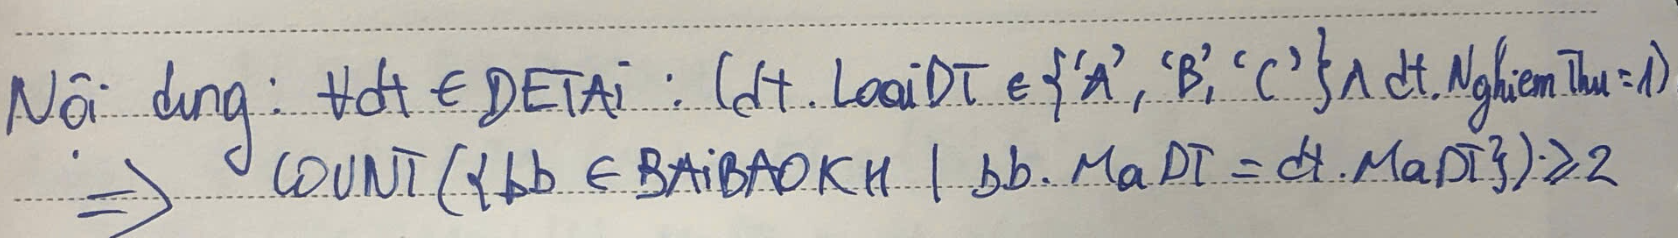 Nội dung: ∀dt ∈ DETAi : (dt.LoaiDT ∈ {'A', 'B', 'C'} ∧ dt.NghiemThu = 1)
⇒ COUNT({bb ∈ BAiBAOKH | bb.MaDT = dt.MaDT}) ≥ 2